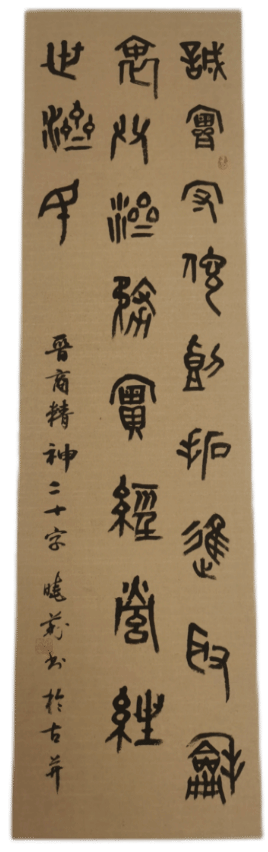 誠實守信創拓進取龢
衷共濟務實經營經
世濟民
晉商精神二十字 曉 書於古并